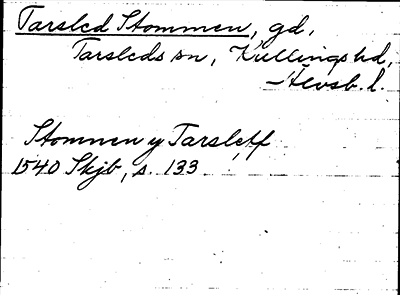 Tarsled Stommen, gd,
Tarsleds sn, Kullings hd,
Älvsb. l.
Stommen y Tarslett
1540 Skjb, s. 133